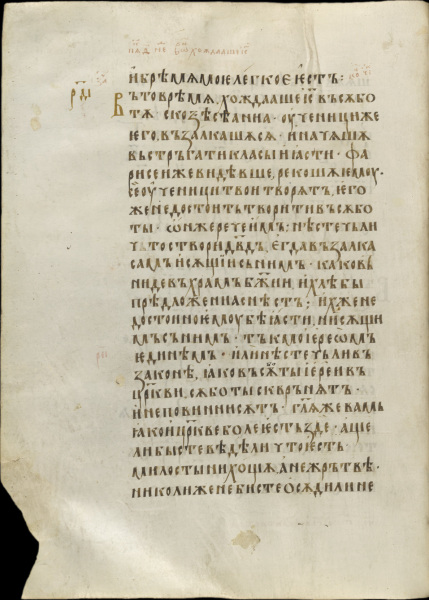 и҆брѣмѧмоѥлегкоѥи҆єстъ:
Вътоврѣмѧ. хождаашеі҃свъсѫбо
тѫ· сквозѣсѣанїа· оу҆ченициже
иего, възалкашѧсѧ· и҆начѧшѧ
въстръгатикласыи҆ꙗсти· фа
рисеижевидѣвше, рекошѧѥмоу·
сеоу҆ченицитвоитворѧтъ, ѥ҆го
женедостоитътворитивъсѫбо
ты· ѡ҆нжеречеимъ: нѣстечьтьли
чьтостворид҃вдъ, є҆гдавъзалка
самъи҆сѫщїисънимъ· каковъ
нидевъхрамъбж҃їи, и҆хлѣбы
прѣдложениаснѣстъ: и҆хжене
достоиноѥмоубѣꙗсти, нисѫщи
мъсънимъ· тъкмоіерешмъ
ѥдинѣмъ· и҆линѣстечьливъ
законѣ, ꙗковъсѫботыіереивъ
цр҃кви, сѫботыскврънѧтъ·
и҆неповиннисѫтъ· гл҃ѫжевамь
ꙗкоцр҃квеболеѥстьзде· аще
либыстеведѣличтоѥстъ·
милостынихощѫанежрътвѣ·
николиженебистеосѫдилине